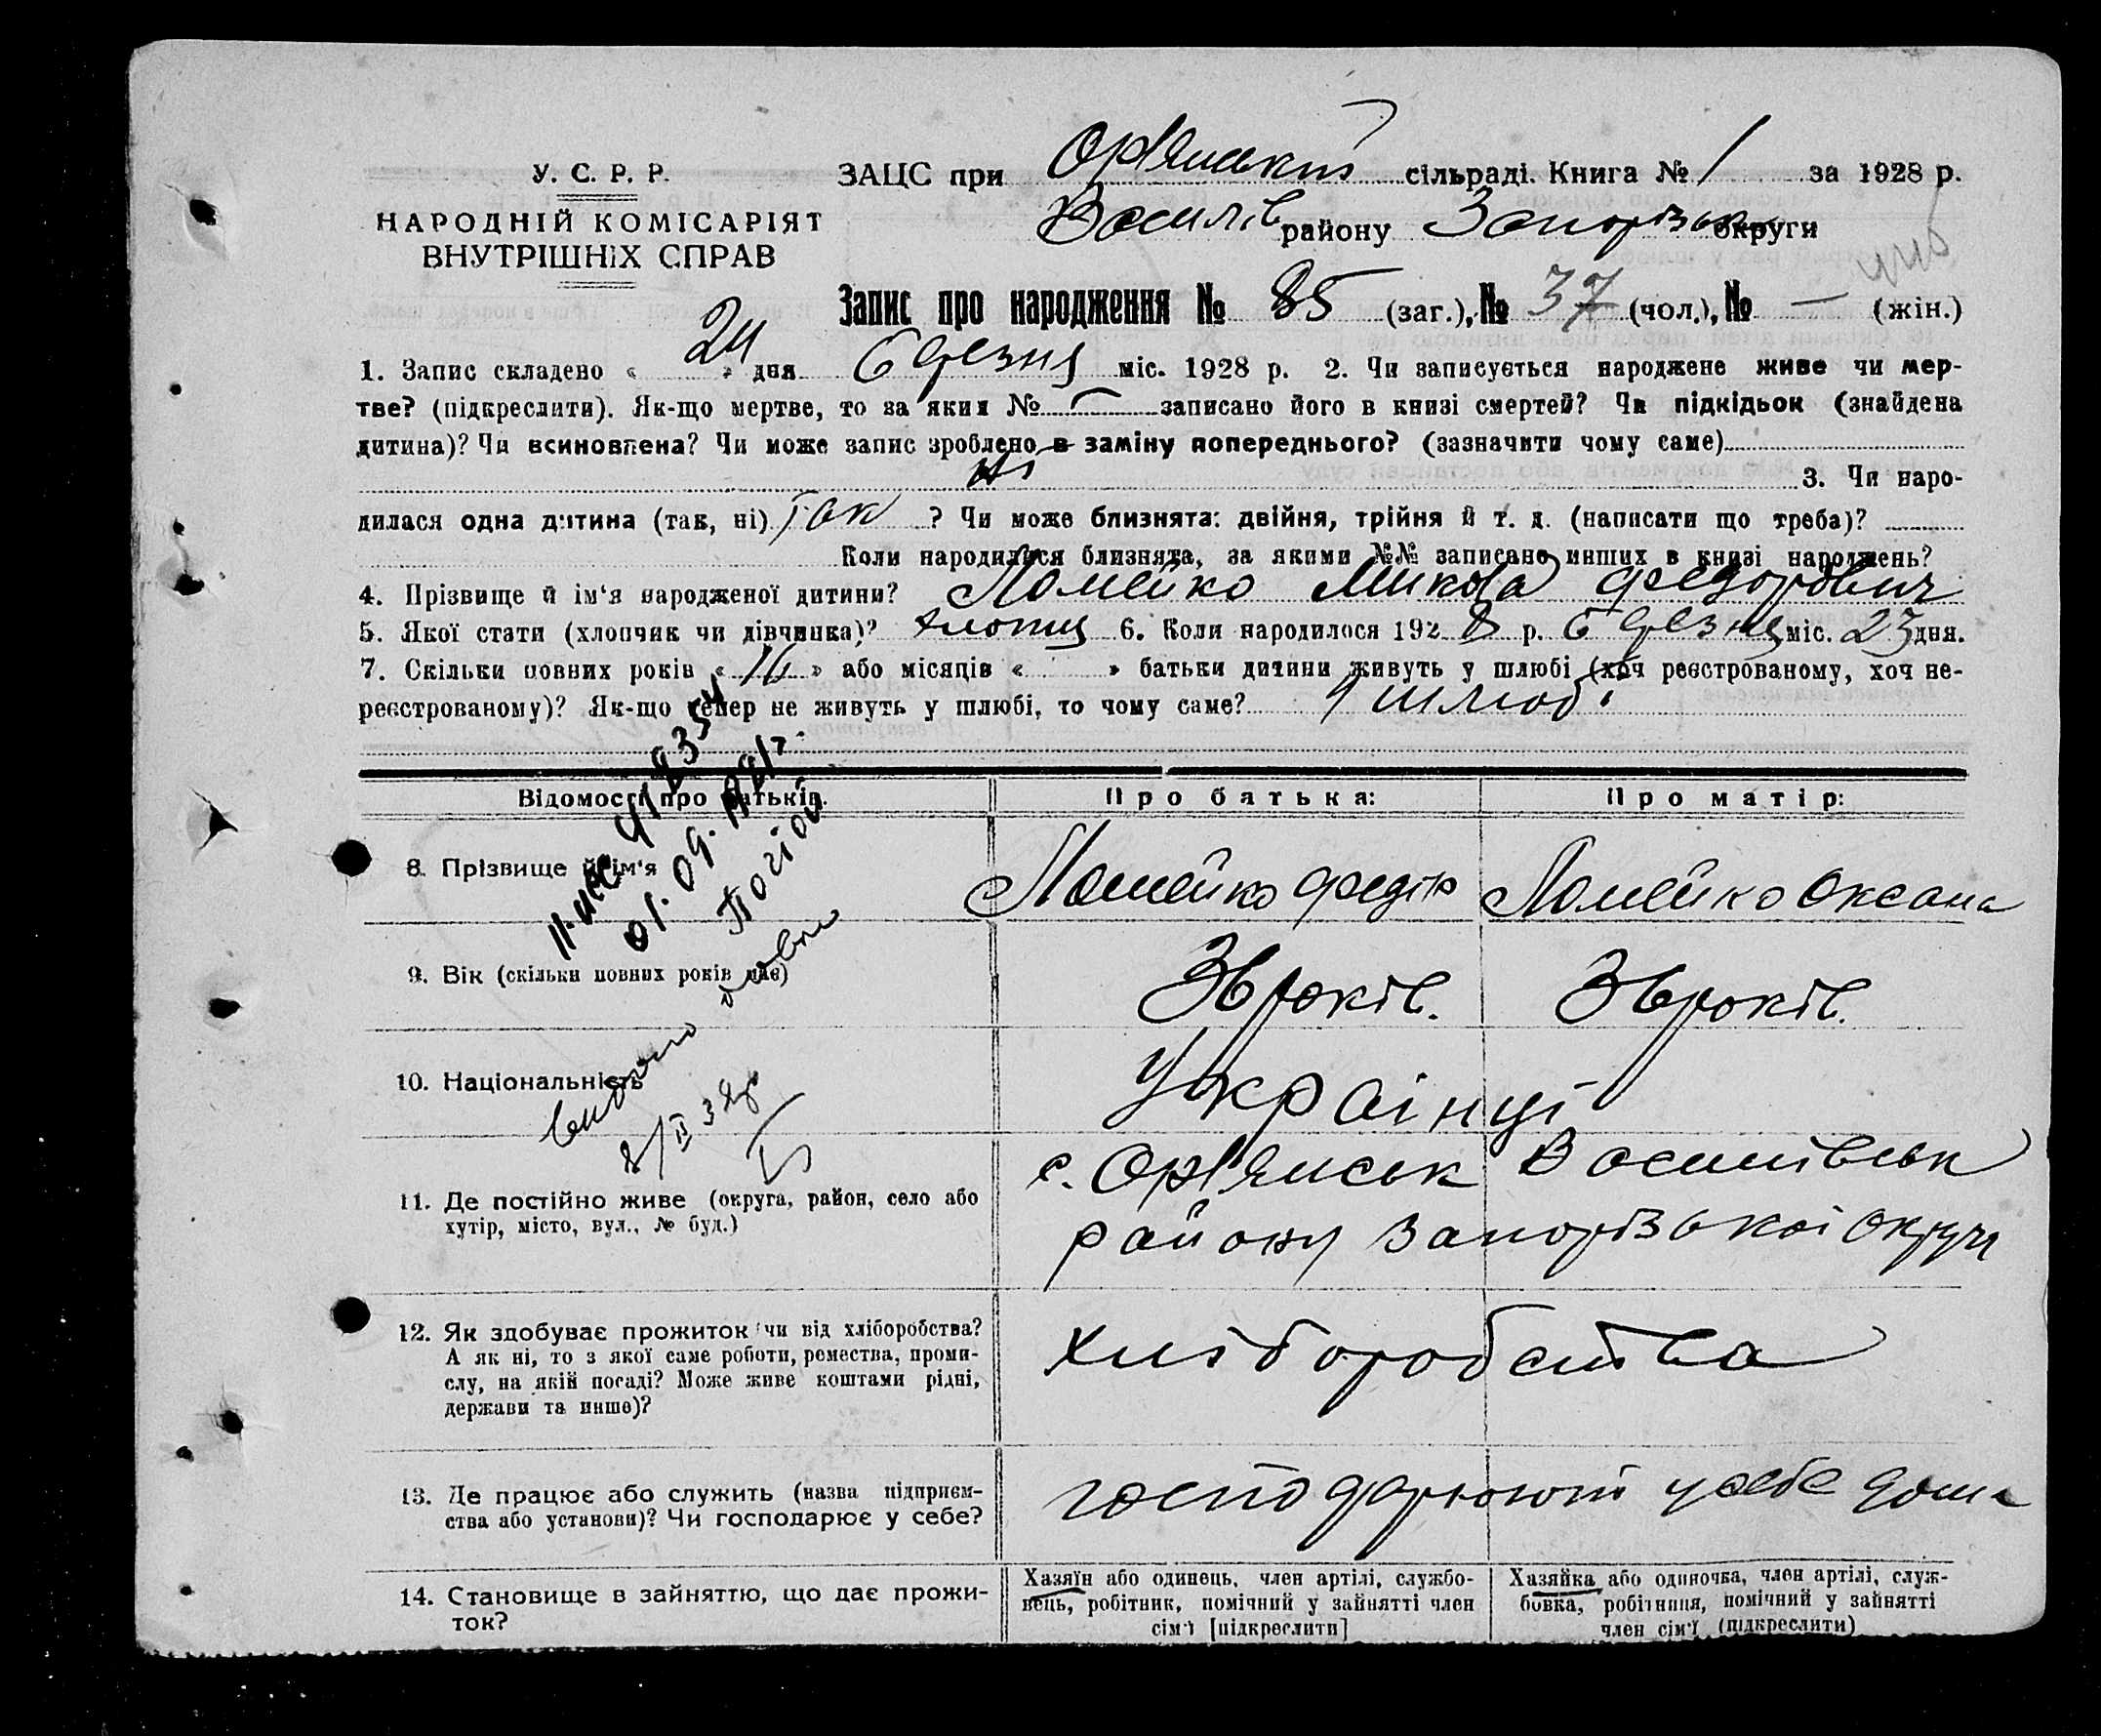 У. С. Р. Р.
НАРОДНІЙ КОМІСАРІЯТ
ВНУТРІШНІХ СПРАВ
ЗАЦС при Орʼянській сільраді. Книга № 1 за 1928 р.
Василів району Запорізьк округи
Запис про народження № 85 (заг.), № 37 (чол.), № — (жін.)
1. Запис складено « 24 » дня березня міс. 1928 р. 2. Чи записується народжене живе чи мер-
тве? (підкреслити). Як-що мертве, то за яким № — записано його в книзі смертей? Чи підкідьок (знайдена
дитина)? Чи всиновлена? Чи може запис зроблено в заміну попереднього? (зазначити чому саме)
ні 3. Чи наро-
дилася одна дитина (так, ні) Так ? Чи може близнята: двійня, трійня й т. д. (написати що треба)?
Коли народилися близнята, за якими №№ записано инших в книзі народжень?
4. Прізвище й ім‘я народженої дитини? Ломейко Микола Федорович
5. Якої стати (хлопчик чи дівчинка)? хлопец 6. Коли народилося 1928 р. березня міс. 23 дня.
7. Скільки повних років « 16 » або місяців « » батьки дитини живуть у шлюбі (хоч реєстрованому, хоч не-
реєстрованому)? Як-що тепер не живуть у шлюбі, то чому саме? У шлюбі
Відомості про батьків. Про батька: Про матір:
8. Прізвище й ім‘я Ломейко Федір Ломейко Оксана
9. Вік (скільки повних років має) 36 років. 36 років.
10. Національність Українці
11. Де постійно живе (округа, район, село або
хутір, місто, вул., № буд.)
с. Орʼянськ Василівськ
району Запорізької округи
12. Як здобуває прожиток чи від хліборобства?
А як ні, то з якої саме роботи, ремества, проми-
слу, на якій посаді? Може живе коштами рідні,
держави та инше)?
хліборобства
13. Де працює або служить (назва підприєм-
ства або установи)? Чи господарює у себе?
господарюють у себе дома
14. Становище в зайняттю, що дає прожи-
ток?
Хазяїн або одинець, член артілі, службо-
вець, робітник, помічний у зайнятті член
сім‘ї [підкреслити]
Хазяйка або одиночка, член артілі, служ-
бовка, робітниця, помічний у зайнятті
член сім‘ї (підкреслити)